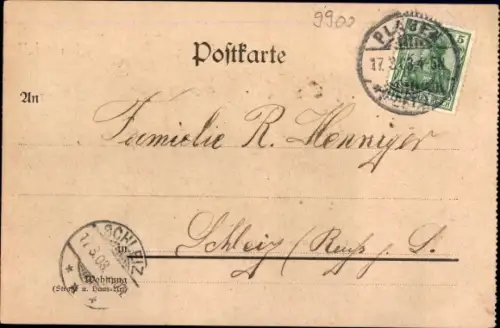 9900
Postkarte
PLAUEN
17.3.03.4-5N.
5
An
Familie R. Henniger
SCHLEIZ
17.3.03
in
Schleiz (Reuß j. L.
Wohnung
(Straße u. Haus-Nr.)